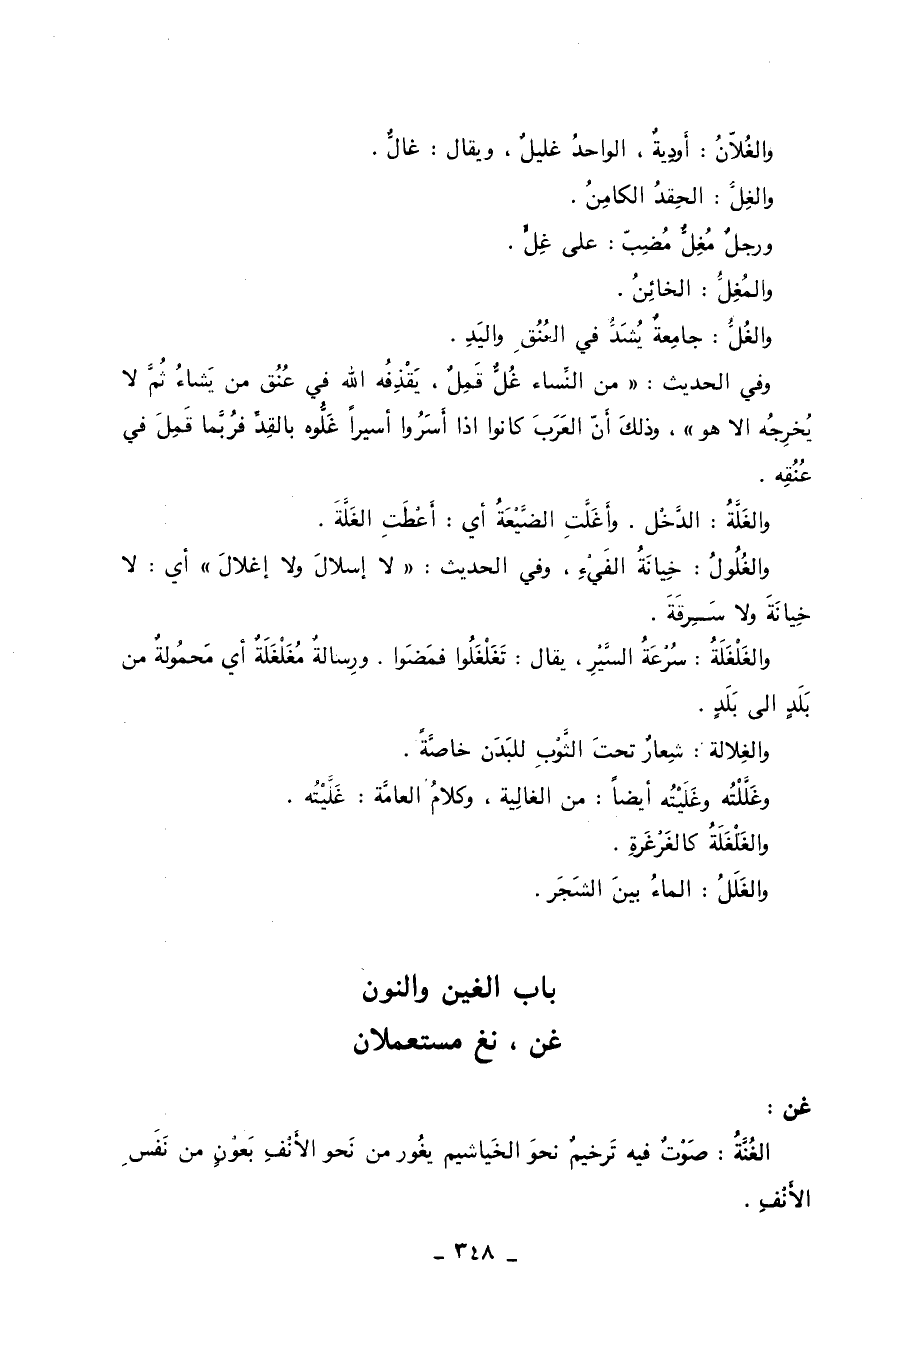 والغُلاّنُ : أَودِيةٌ ، الواحدُ غليلٌ ، ويقال : غالٌّ .
والغِلُّ : الحِقدُ الكامِنُ .
ورجلٌ مُغِلٌّ مُضِبّ : على غِلٍّ .
والمُغِلُّ : الخائِنُ .
والغُلُّ : جامِعةٌ يُشَدُّ في العُنُقِ واليَدِ .
وفي الحديث : « من النِّساء غُلٌّ قَمِلٌ ، يَقْذِفُه الله في عُنُق من يَشاءُ ثُمَّ لا
يُخرِجُه الا هو » ، وذلكَ أَنّ العَرَبَ كانوا اذا أَسَرُوا أسيراً غَلُّوه بالقِدِّ فرُبَّما قَمِلَ في
عُنُقِه .
والغَلَّةُ : الدَّخْل . وأَغَلَّتِ الضَّيْعَةُ أي : أَعْطَتِ الغَلَّةَ .
والغُلُولُ : خِيانَةُ الفَيْءِ ، وفي الحديث : « لا إسلالَ ولا إغلالَ » أي : لا
خِيانَةَ ولا سَـِرقَةَ .
والغَلْغَلَةُ : سُرْعَةُ السَّيْرِ ، يقال : تَغَلْغَلُوا فمَضَوا . ورِسالةٌ مُغَلْغَلَةٌ أي مَحمُولةٌ من
بَلَدٍ الى بَلَدٍ .
والغِلالة : شِعارٌ تحتَ الثَّوْبِ للبَدَن خاصَّةً .
وغَلَّلْتُه وغَلَيْتُه أيضاً : من الغالِية ، وكلامُ العامَّة : غَلَّيْتُه .
والغَلْغَلَةُ كالغَرْغَرةِ .
والغَلَلُ : الماءُ بينَ الشَجَر .
باب الغين والنون
غن ، نغ مستعملان
غن :
الغُنَّةُ : صَوْتٌ فيه تَرخيمٌ نحوَ الخَياشيم يغُور من نَحو الأَنْفِ بَعوْنٍ من نَفَسِ
الأَنْفِ .
ـ ٣٤٨ ـ